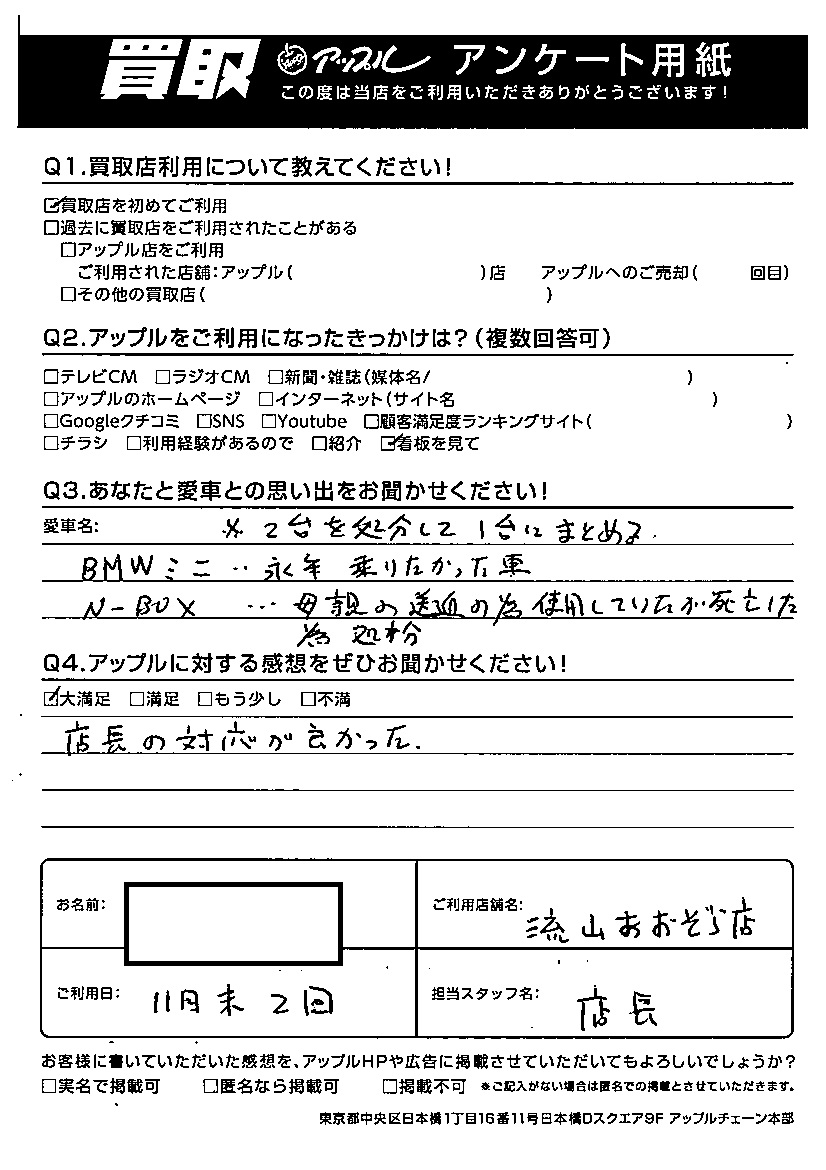 買取 アップル アンケート用紙
この度は当店をご利用いただきありがとうございます!
Q1.買取店利用について教えてください!
☑買取店を初めてご利用
□過去に買取店をご利用されたことがある
□アップル店をご利用
ご利用された店舗:アップル( )店 アップルへのご売却( 回目)
□その他の買取店( )
Q2.アップルをご利用になったきっかけは?(複数回答可)
□テレビCM □ラジオCM □新聞・雑誌(媒体名/ )
□アップルのホームページ □インターネット(サイト名 )
□Googleクチコミ □SNS □Youtube □顧客満足度ランキングサイト( )
□チラシ □利用経験があるので □紹介 ☑看板を見て
Q3.あなたと愛車との思い出をお聞かせください!
愛車名: ※2台を処分して1台にまとめる.
BMWミニ ‥永年乗りたかった車
N-BOX …母親の送迎の為使用していたが死亡した
為処分
Q4.アップルに対する感想をぜひお聞かせください!
☑大満足 □満足 □もう少し □不満
店長の対応が良かった.
お名前:
ご利用店舗名: 流山おおぞら店
ご利用日: 11月末 2回
担当スタッフ名: 店長
お客様に書いていただいた感想を、アップルHPや広告に掲載させていただいてもよろしいでしょうか?
□実名で掲載可 □匿名なら掲載可 □掲載不可 ※ご記入がない場合は匿名での掲載とさせていただきます。
東京都中央区日本橋1丁目16番11号日本橋Dスクエア9F アップルチェーン本部